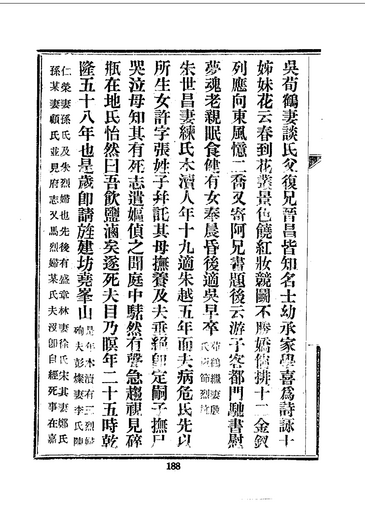 吳荀鶴妻談氏父復兄晉昌皆知名士幼承家學喜爲詩詠十
姊妹花云春到花叢景色饒紅妝競鬭不勝嬌偏排十二金釵
列應向東風憶二喬又寄阿兄書題後云游子客都門馳書慰
夢魂老親眠食健有女奉晨昏後適吳早卒
朱世昌妻練氏木瀆人年十九適朱越五年而夫病危氏先以
所生女許字張姓子幷託其母撫養及夫垂絕卽定嗣子撫尸
哭泣母知其有死志遣嫗偵之聞庭中騞然有聲急趨視見碎
瓶在地氏怡然曰吾飲鹽滷矣遂死夫目乃瞑年二十五時乾
隆五十八年也是歲卽請旌建坊堯峯山
是年木瀆有三烈婦
殉夫彭燦妻李氏陸
仁榮妻孫氏及朱烈婦也先後有盛章林妻徐氏宋其妻鄭氏
孫某妻顧氏並見府志又馬烈婦某氏夫沒卽自經死事在嘉
188